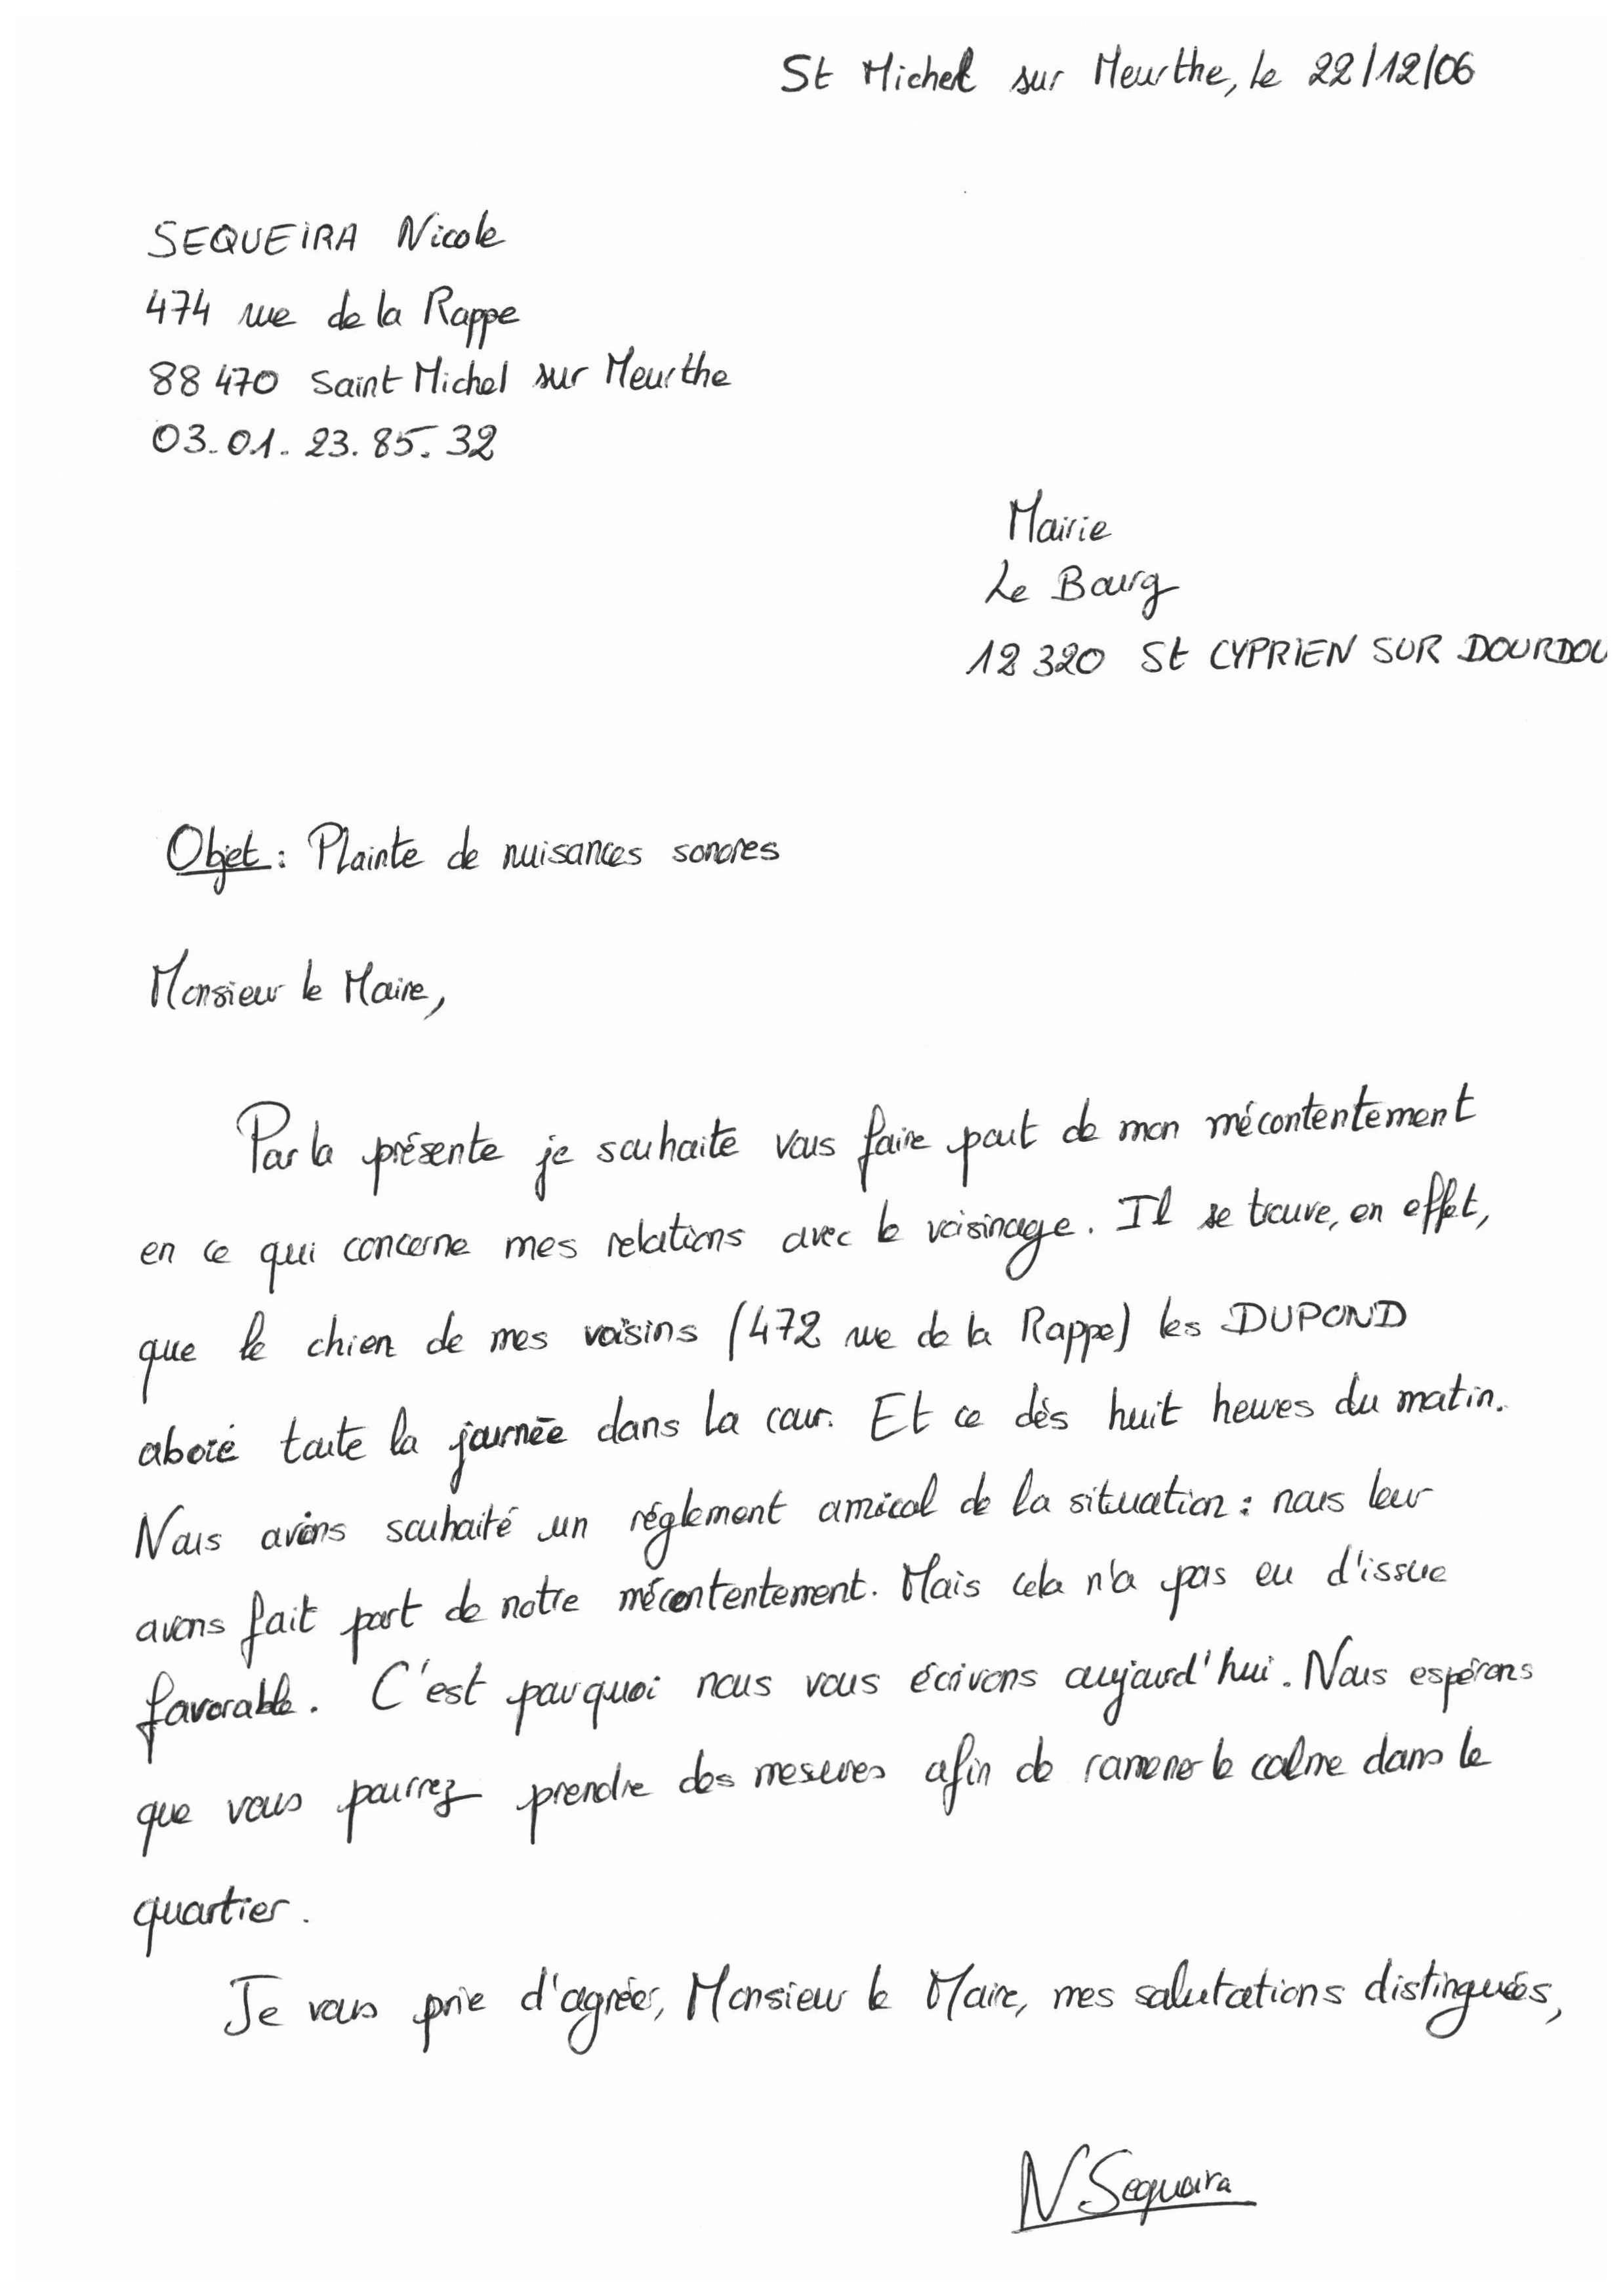 St Michel sur Meurthe, le 22/12/06
SEQUEIRA Nicole
474 rue de la Rappe
88 470 Saint Michel sur Meurthe
03.01.23.85.32
Mairie
Le Bourg
12 320 St CYPRIEN SUR DOURDOU
Objet : Plainte de nuisances sonores
Monsieur le Maire,
Par la présente je souhaite vous faire part de mon mécontentement
en ce qui concerne mes relations avec le voisinage. Il se trouve, en effet,
que le chien de mes voisins (472 rue de la Rappe) les DUPOND
aboie toute la journée dans la cour. Et ce dès huit heures du matin.
Nous avons souhaité un réglement amical de la situation : nous leur
avons fait part de notre mécontentement. Mais cela n'a pas eu d'issue
favorable. C'est pourquoi nous vous écrivons aujourd'hui. Nous espérons
que vous pourrez prendre des mesures afin de ramener le calme dans le
quartier.
Je vous prie d'agréer, Monsieur le Maire, mes salutations distinguées,
N Sequeira